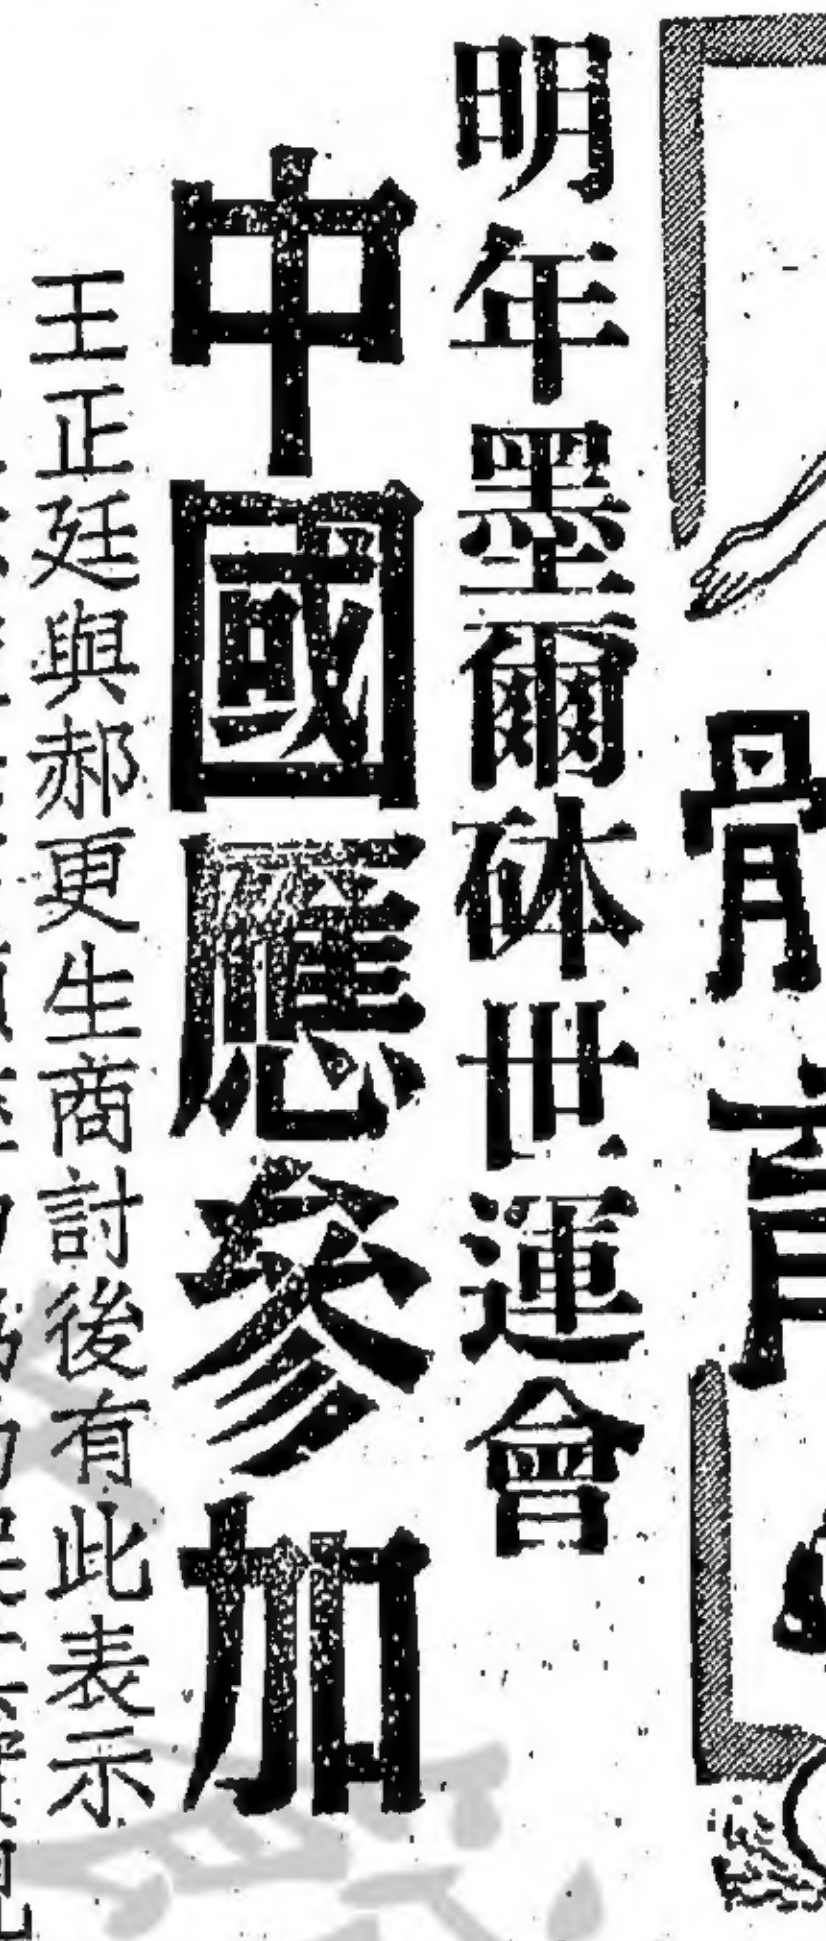 體育
明年墨爾砵世運會
中國應參加
王正廷與郝更生商討後有此表示